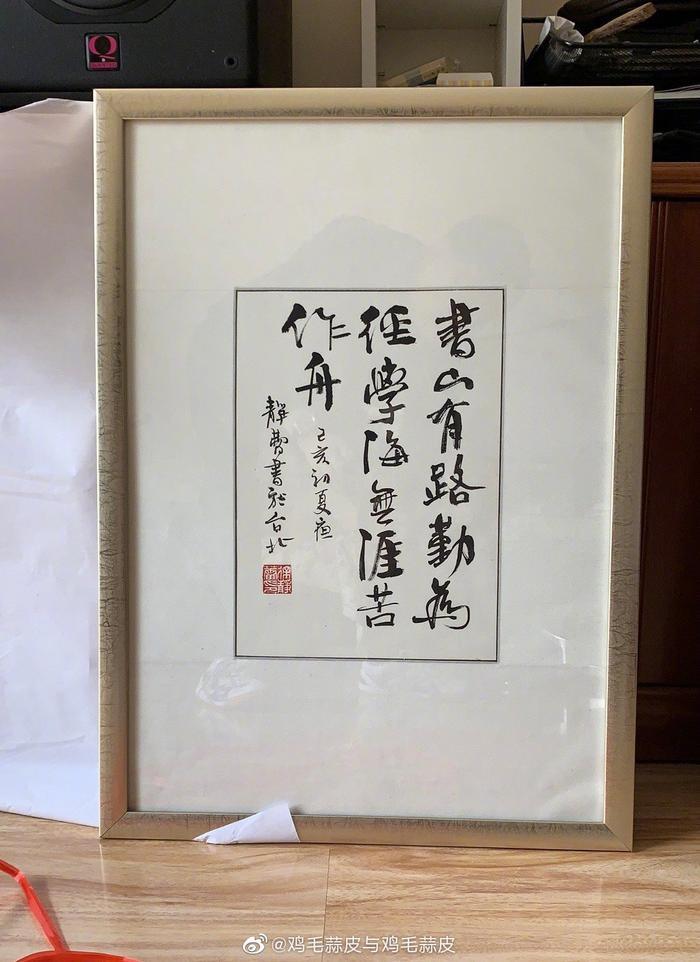 書山有路勤為
徑學海無涯苦
作舟
己亥初夏夜
靜書於台北
@鸡毛蒜皮与鸡毛蒜皮